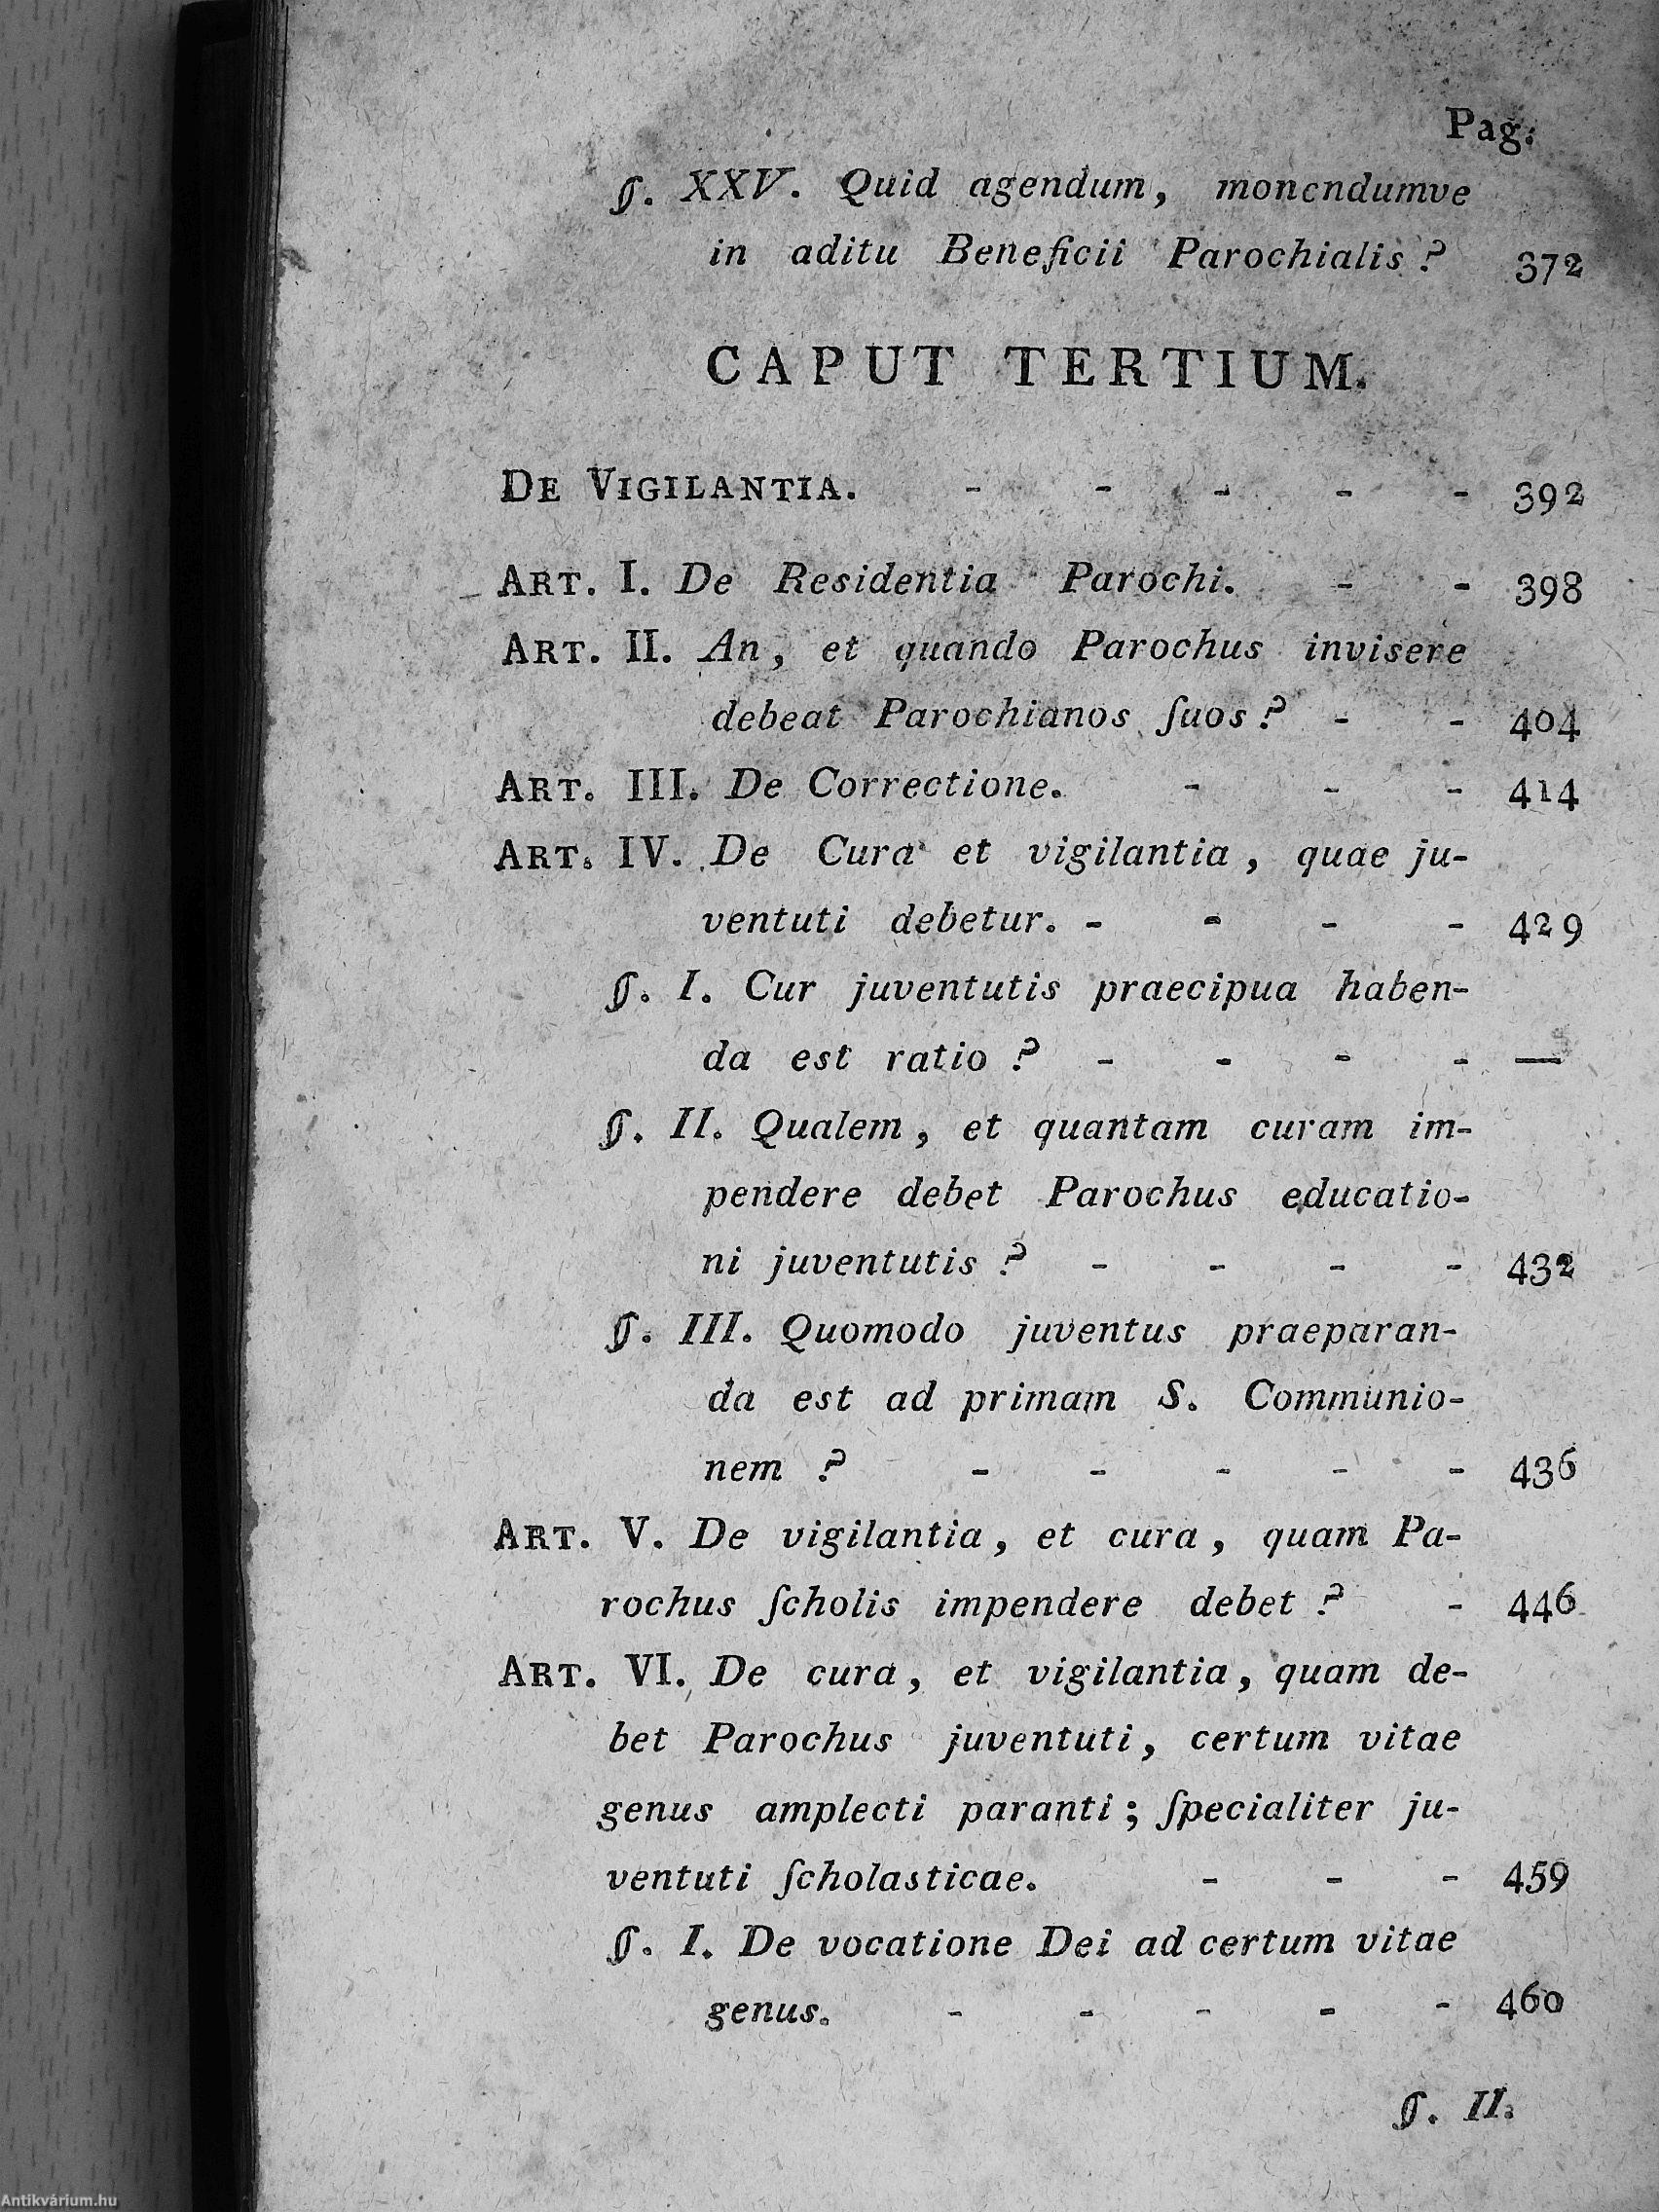 Pag.
§. XXV. Quid agendum, monendumve
in aditu Beneficii Parochialis? 372
CAPUT TERTIUM.
DE VIGILANTIA. - - - - - 392
ART. I. De Residentia Parochi. - - 398
ART. II. An, et quando Parochus invisere
debeat Parochianos ſuos? - - 404
ART. III. De Correctione. - - - 414
ART. IV. De Cura et vigilantia, quae ju-
ventuti debetur. - - - - 429
§. I. Cur juventutis praecipua haben-
da est ratio? - - - - —
§. II. Qualem, et quantam curam im-
pendere debet Parochus educatio-
ni juventutis? - - - - 432
§. III. Quomodo juventus praeparan-
da est ad primam S. Communio-
nem? - - - - - 436
ART. V. De vigilantia, et cura, quam Pa-
rochus ſcholis impendere debet? - 446
ART. VI. De cura, et vigilantia, quam de-
bet Parochus juventuti, certum vitae
genus amplecti paranti; ſpecialiter ju-
ventuti ſcholasticae. - - - 459
§. I. De vocatione Dei ad certum vitae
genus. - - - - - 460
§. II.
Antikvárium.hu